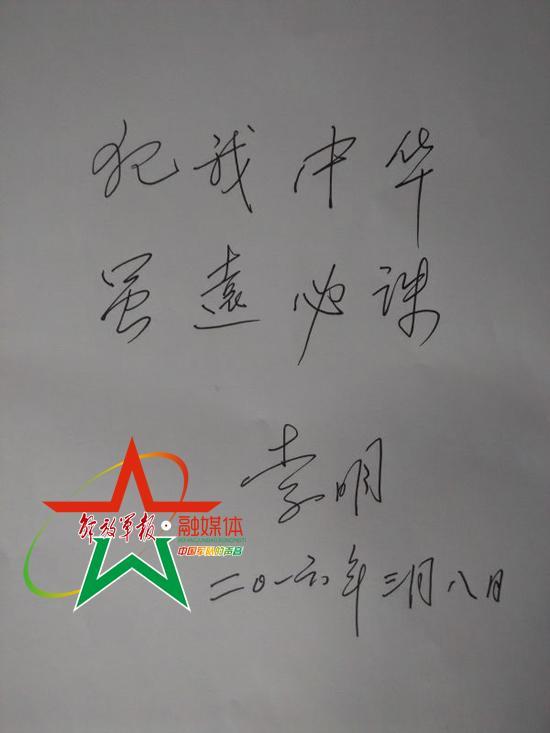 犯我中华
虽遠必诛
解放军报·融媒体
中国军队的声音
二〇一六年三月八日